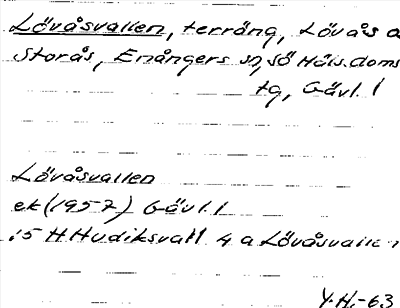 Lövåsvallen, terräng, Lövås a
Storås, Enångers sn, sö Häls. doms
tg, Gävl. l
Lövåsvallen
ek (1957) Gävl. l
15 H Hudiksvall 4 a Lövåsvallen
Y.H.-63